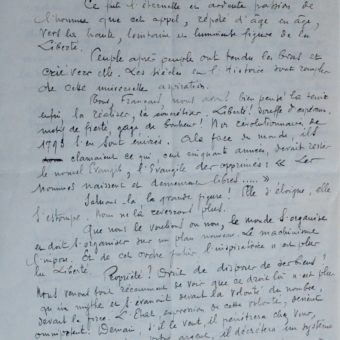 Ce fut l'éternelle et ardente passion de
l'homme que cet appel, répété d'âge en âge,
vers la haute, lointaine et lumineuse figure de la
Liberté.
Peuple après peuple ont tendu les bras et
crié vers elle. Les siècles et l'Histoire sont remplis
de cette universelle aspiration.
Nous, Français, nous avons bien pensé la tenir
enfin la réaliser, la Liberté!
motif de fierté, gage de bonheur! Nos révolutionnaires de
1793 l'en sont enivrés. A la face du monde, ils
clamaient ce qui, cent cinquante années, devait rester
le nouvel Evangile, l'Evangile des opprimés: « Les
hommes naissent et demeurent libres..... »
Saluons-la, la grande figure! Elle s'éloigne, elle
s'estompe. Nous ne la reverrons plus.
Que nous le voulions ou non, le monde s'organise
et doit s'organiser sur un plan nouveau. Le machinisme
l'impose. Et de cet ordre futur l'inspiratrice n'est plus
la Liberté.
Propriété? Droit de disposer de ses biens?
Nous venons tout récemment de voir que ce droit là n'est plus
qu'un mythe et s'évanouit devant la volonté du nombre,
devant la force. L'Etat, expression de cette volonté, devient
omnipotent. Demain, s'il le veut, il pénètrera chez vous,
votre argent, il décrètera un système